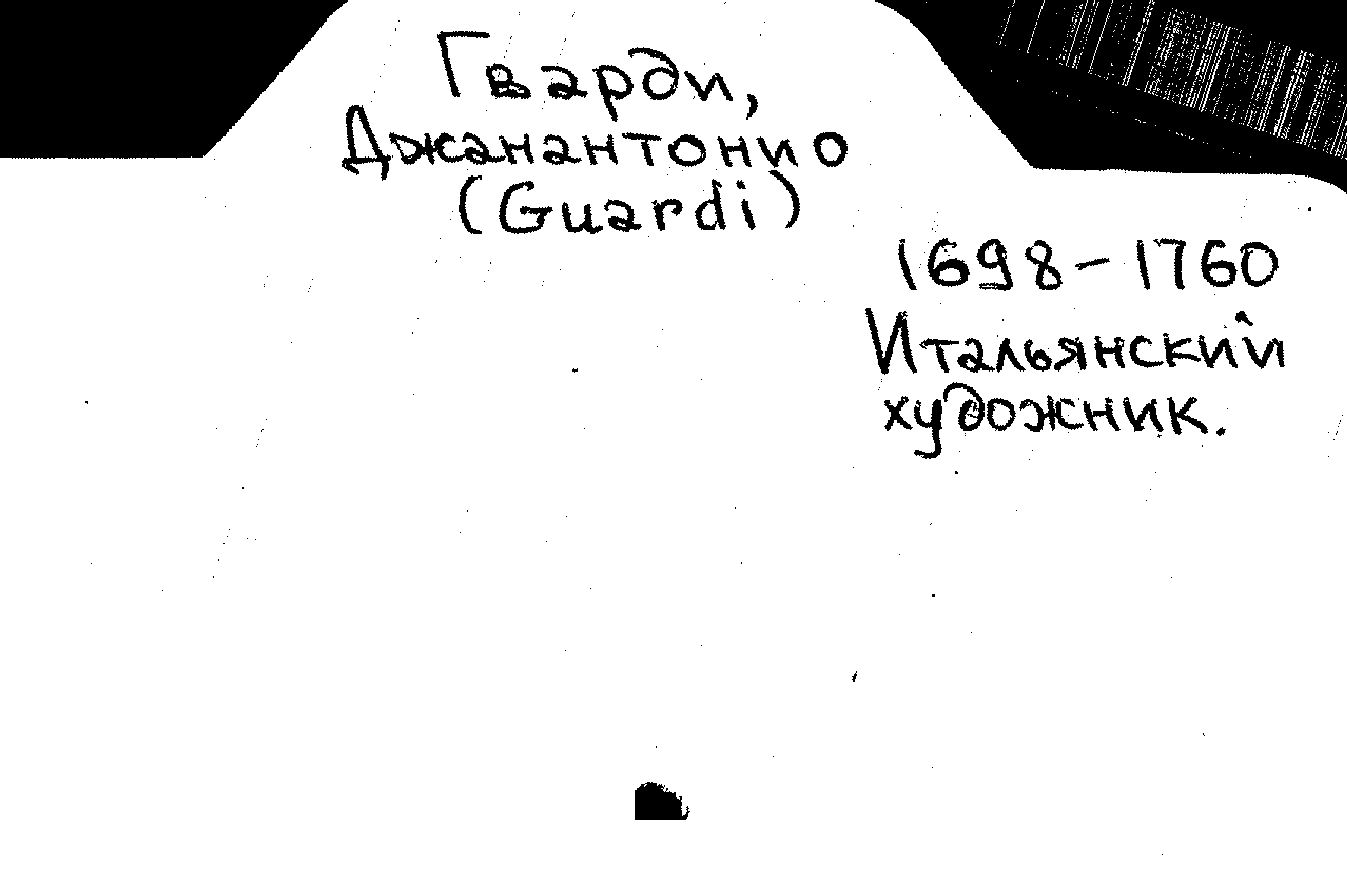 Гварди,
Джанантонио
(Guardi)
1698-1760
Итальянский
художник.